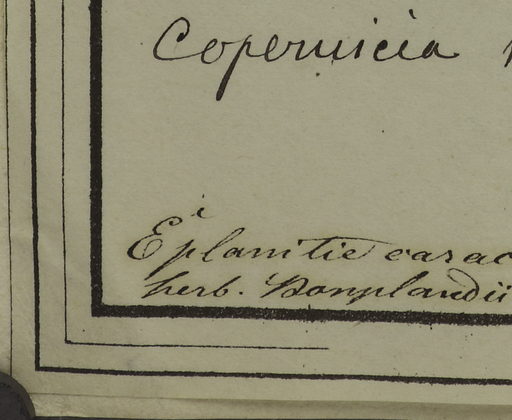 Copernicia
E planitie carac
herb. Bonplandii